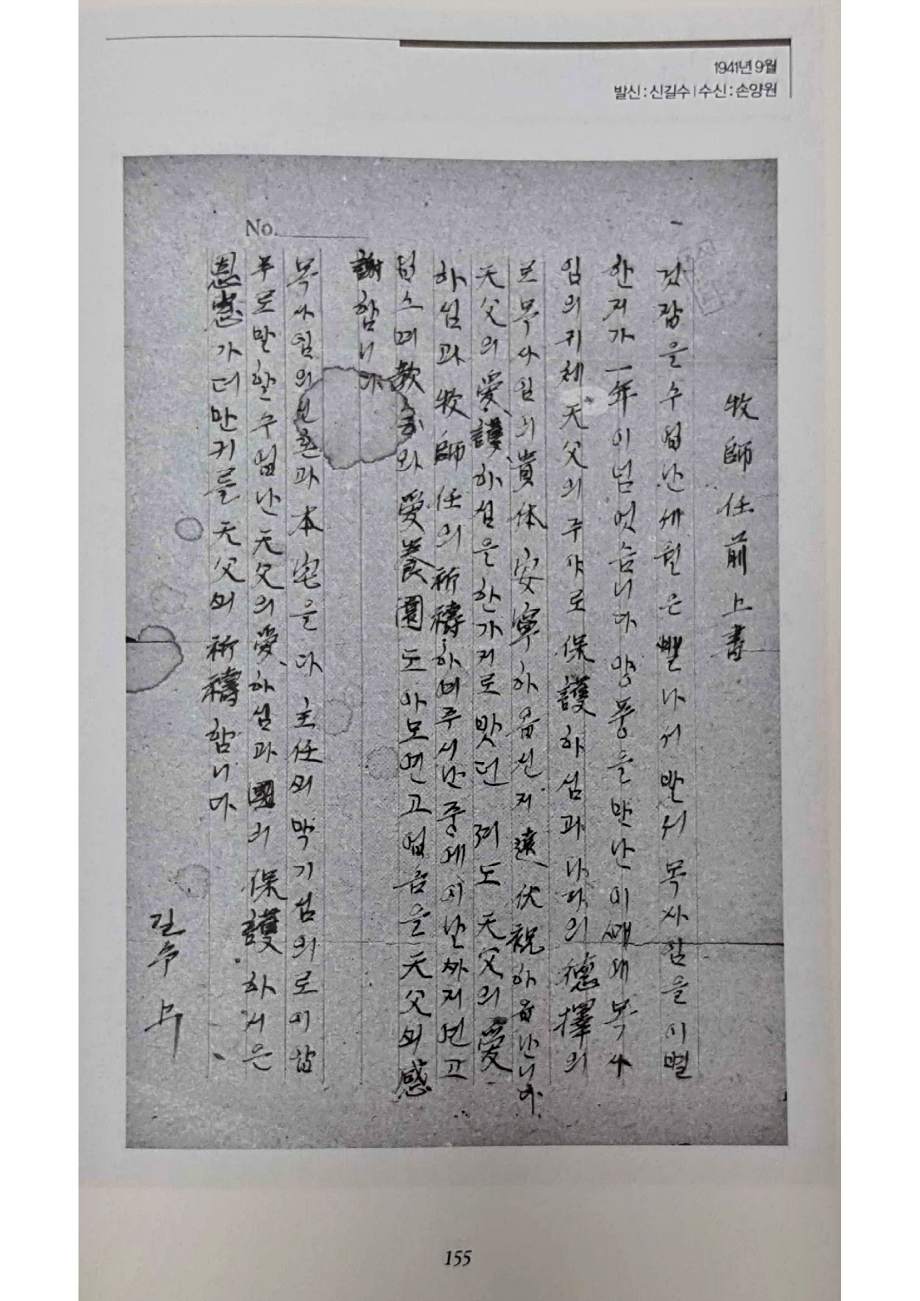 1941년 9월
발신 : 신길수 | 수신 : 손양원
No.
牧師任前上書
것잡을 수 업난 세월은 빨나서 발서 목사님을 이별
한지가 一年이 넘엇슴니다 량풍을 만난 이 때에 목사
임의 귀체 天父의 주야로 保護하심과 나라의 德擇의
로 목사임의 貴体 安寧하옵신지 遠伏祝하옵난니다.
天父의 愛護하심을 한가지로 밧던 저도 天父의 愛
하심과 牧師任의 祈禱하며 주시난 중에 지난까지 연고
업스며 敎会와 愛養園도 아모 연고 업슴을 天父의 感
謝함니다
목사임의 과 本宅을 다 主任의 막기심의로 이
부로 말할 수 업난 天父의 愛하심과 國의 保護하시은
恩惠가 더 만키를 天父의 祈禱함니다
길수
155